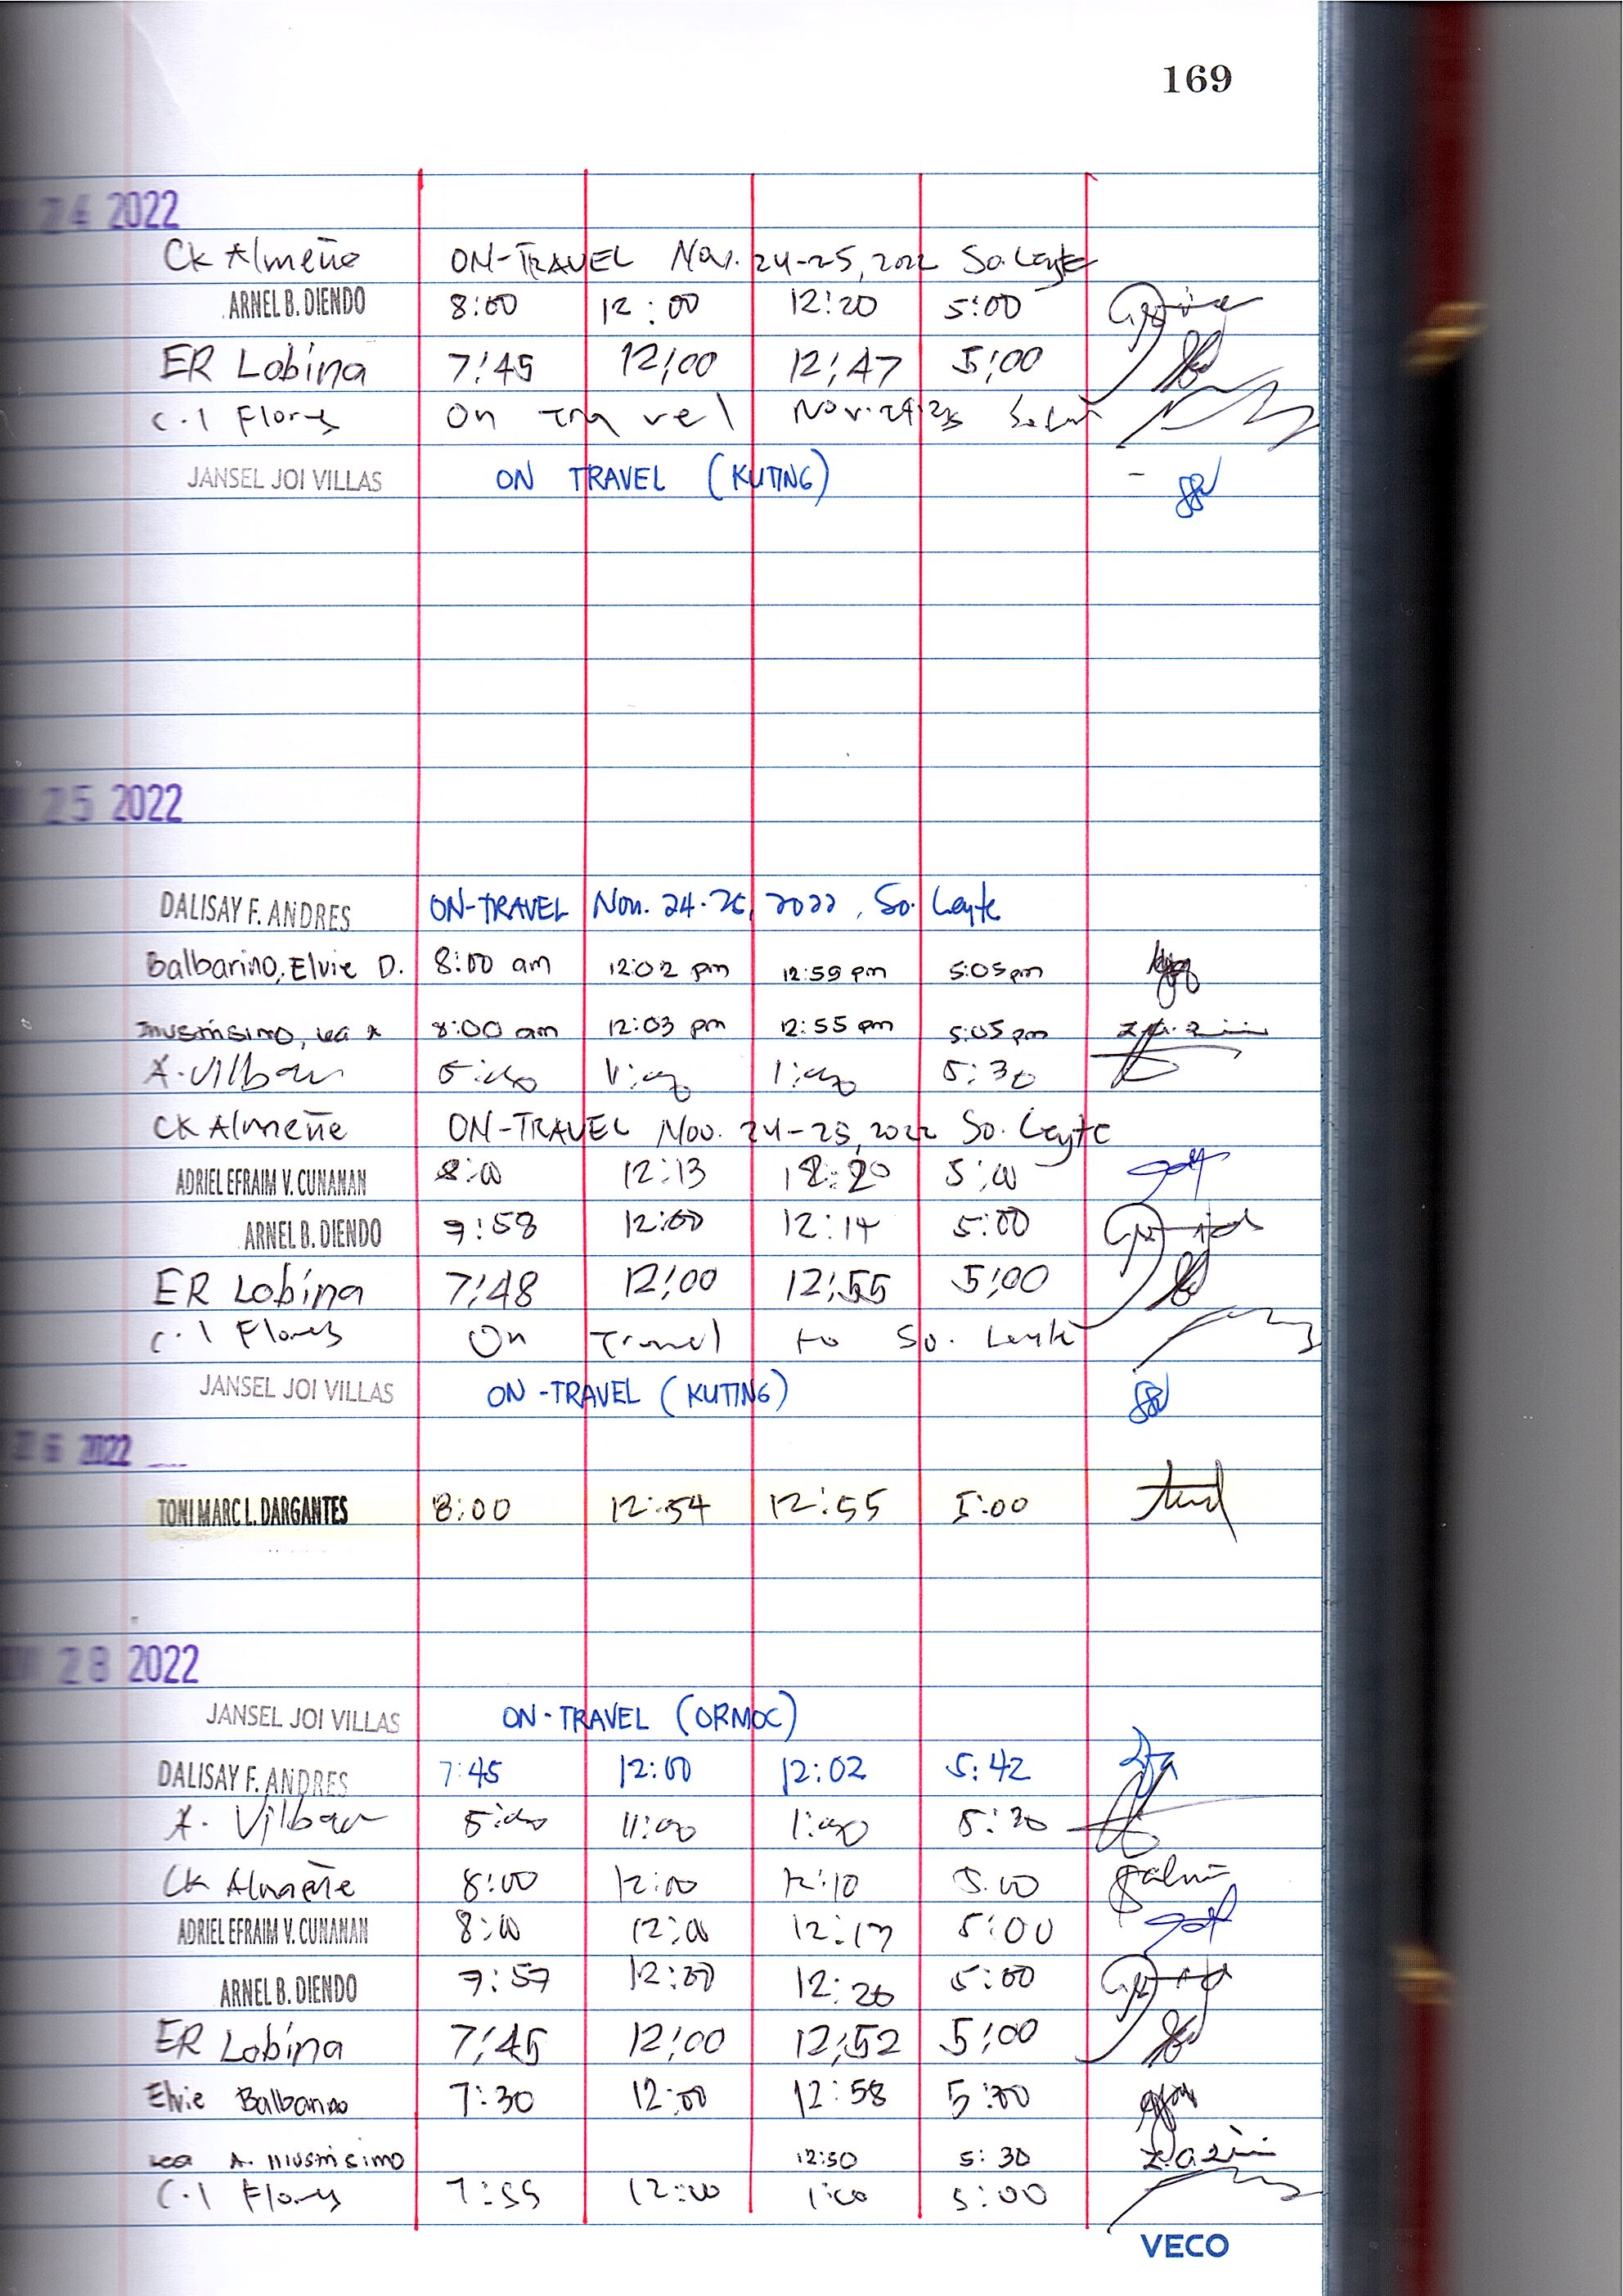 169
24 2022
CK Almeñe ON-TRAVEL Nov. 24-25, 2022 So. Leyte
ARNEL B. DIENDO 8:00 12:00 12:20 5:00
ER Lobina 7:45 12:00 12:47 5:00
C.I Flores On Travel Nov. 24-25
JANSEL JOI VILLAS ON TRAVEL (KUTING) -
25 2022
DALISAY F. ANDRES ON-TRAVEL Nov. 24-25, 2022, So. Leyte
Balbarino, Elvie D. 8:00 am 12:02 pm 12:59 pm 5:05 pm
8:00 am 12:03 pm 12:55 pm 5:05 pm
A. Vilbar 5:30
CK Almeñe ON-TRAVEL Nov. 24-25, 2022 So. Leyte
ADRIEL EFRAIM V. CUNANAN 8:00 12:13 12:20 5:00
ARNEL B. DIENDO 7:58 12:00 12:14 5:00
ER Lobina 7:48 12:00 12:55 5:00
C.I Flores On Travel to So. Leyte
JANSEL JOI VILLAS ON-TRAVEL (KUTING)
26 2022
TONI MARC L. DARGANTES 8:00 12:54 12:55 5:00
28 2022
JANSEL JOI VILLAS ON-TRAVEL (ORMOC)
DALISAY F. ANDRES 7:45 12:00 12:02 5:42
A. Vilbar 11:00 1:00 5:30
CK Almeñe 8:00 12:00 12:10 5:00
ADRIEL EFRAIM V. CUNANAN 8:00 12:00 12:17 5:00
ARNEL B. DIENDO 7:57 12:00 12:20 5:00
ER Lobina 7:45 12:00 12:52 5:00
Elvie Balbarino 7:30 12:00 12:58 5:00
Lea A. Illustrisimo 12:50 5:30
C.I Flores 7:55 12:00 1:00 5:00
VECO